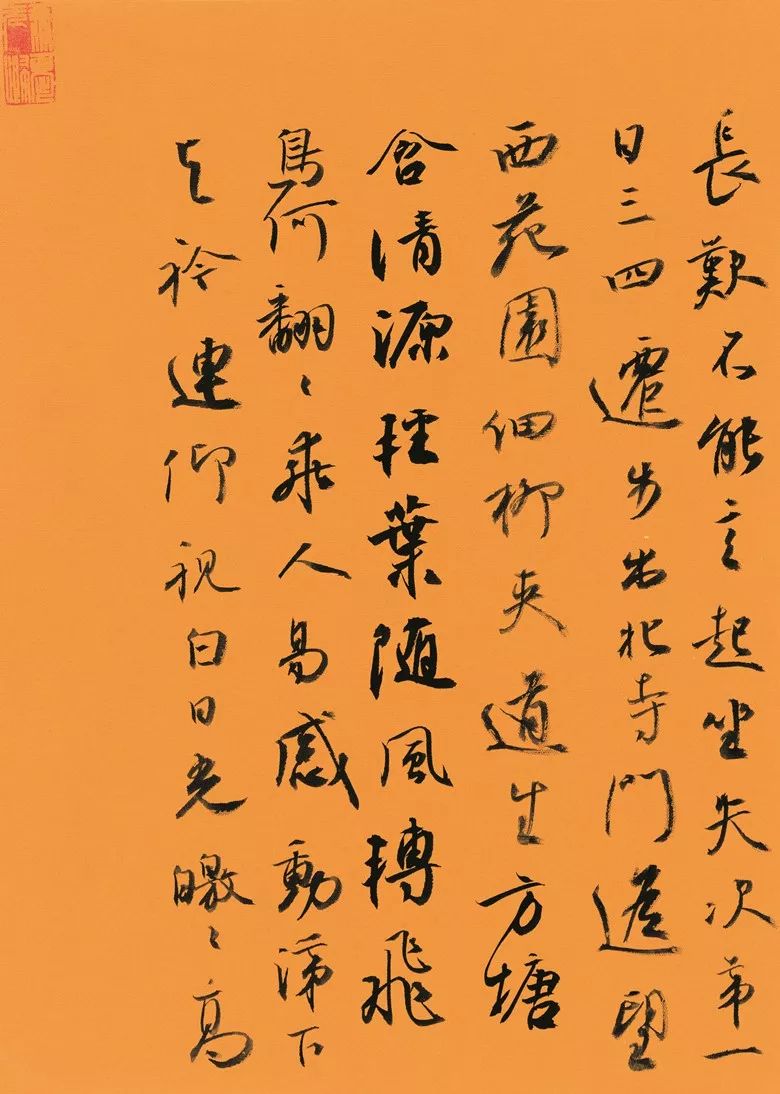 長歎不能言起坐失次第一
日三四遷步出北寺門遙望
西苑園細柳夾道生方塘
含清源輕葉隨風轉飛
鳥何翻〻乖人易感動涕下
与衿連仰視白日光皦〻高